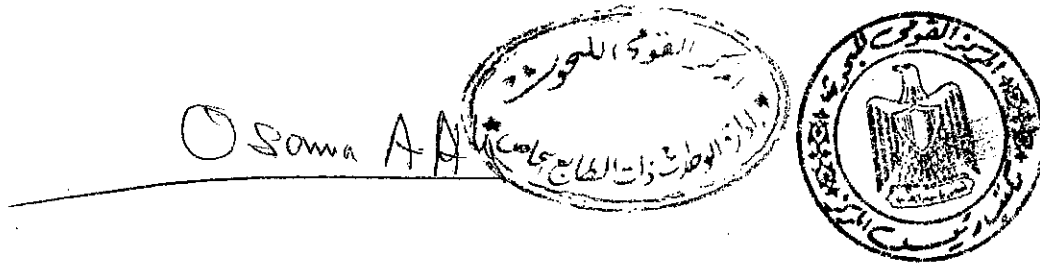 Osama A. Ali
المركز القومى للبحوث
إدارة الوظائف ذات الطابع الخاص
المركز القومى للبحوث
مكتب رئيس المركز